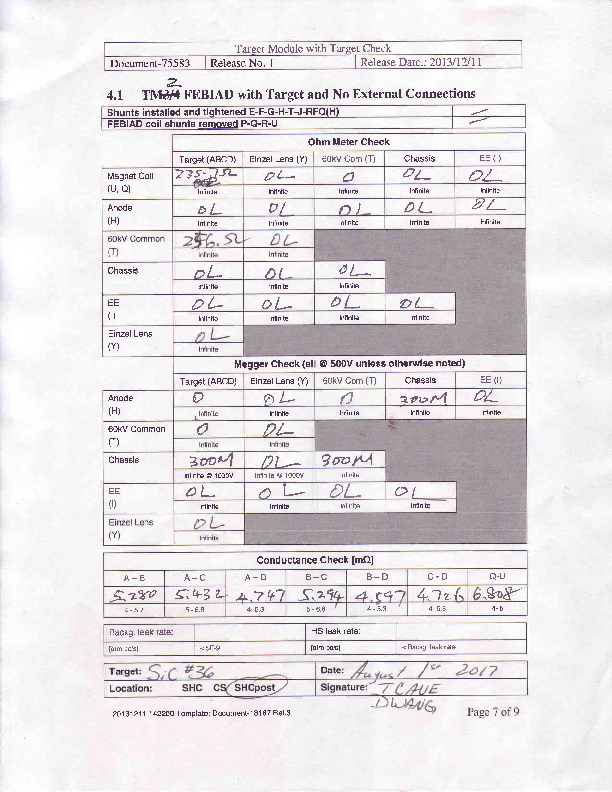 Target Module with Target Check
Document-75583 Release No. 1 Release Date.: 2013/12/11
2
4.1 TM FEBIAD with Target and No External Connections
Shunts installed and tightened E-F-G-H-T-J-RFQ(H)
FEBIAD coil shunts removed P-Q-R-U
Ohm Meter Check
Target (ABCD) Einzel Lens (Y) 60kV Com (T) Chassis EE (I)
Magnet Coil (U, Q) OL 0 OL OL
Infinite Infinite Infinite Infinite Infinite
Anode (H) OL OL OL OL OL
Infinite Infinite Infinite Infinite Infinite
60kV Common (T) OL
Infinite Infinite
Chassis OL OL OL
Infinite Infinite Infinite
EE (I) OL OL OL OL
Infinite Infinite Infinite Infinite
Einzel Lens (Y) OL
Infinite
Megger Check (all @ 500V unless otherwise noted)
Target (ABCD) Einzel Lens (Y) 60kV Com (T) Chassis EE (I)
Anode (H) 0 OL 0 300M OL
Infinite Infinite Infinite Infinite Infinite
60kV Common (T) 0 OL
Infinite Infinite
Chassis 300M OL 300M
Infinite @ 1000V Infinite @ 1000V Infinite
EE (I) OL OL OL OL
Infinite Infinite Infinite Infinite
Einzel Lens (Y) OL
Infinite
Conductance Check [mΩ]
A – B A – C A – D B – C B – D C - D Q-U
5.280 5.432 4.747 5.294 4.597 4.726 6.808
4 - 5.7 5 - 6.3 4 - 5.3 5 - 6.3 4 - 5.3 4 - 5.3 4-6
Backg. leak rate: HS leak rate:
[atm cc/s] <5E-9 [atm cc/s] < Backg. leak rate
Target: SiC #36 Date: August 1st 2017
Location: SHC CS SHCpost Signature: T CAVE
DWANG
20131211 142200 Template: Document-18167 Rel.3 Page 7 of 9